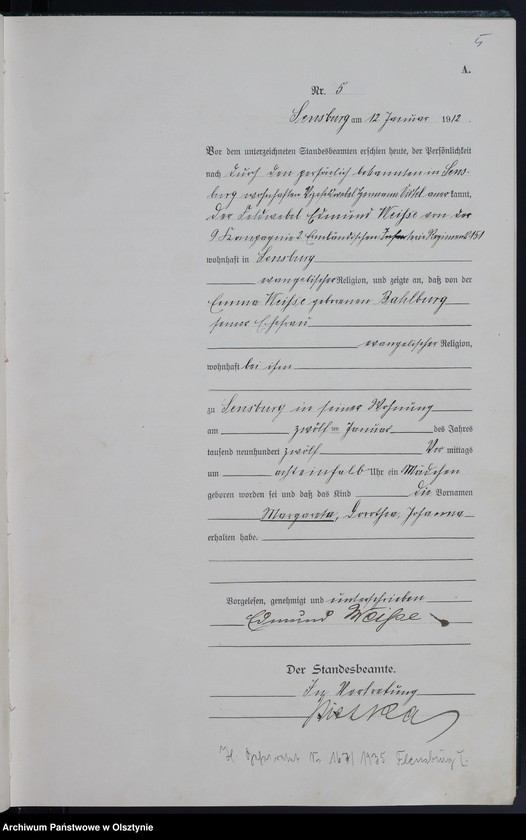 5
A.
Nr. 5
Sensburg am 12 Januar 1912.
Vor dem unterzeichneten Standesbeamten erschien heute, der Persönlichkeit
nach durch den persönlich bekannten in Sens-
burg wohnhaften Vizefeldwebel Hermann anerkannt,
der Feldwebel Edmund Weihse von der
9 Kompagnie 2. Ermländischen Infanterie Regiments 151
wohnhaft in Sensburg
evangelischer Religion, und zeigte an, daß von der
Emma Weihse geborenen Bahlburg
seiner Ehefrau
evangelischer Religion,
wohnhaft bei ihm
zu Sensburg in seiner Wohnung
am zwölften Januar des Jahres
tausend neunhundert zwölf Vor mittags
um achteinhalb Uhr ein Mädchen
geboren worden sei und daß das Kind die Vornamen
Margareta, Dorothea, Johanna
erhalten habe.
Vorgelesen, genehmigt und unterschrieben
Edmund Weihse
Der Standesbeamte.
In Vertretung
H. Nr 167/1935 Flensburg I.
Archiwum Państwowe w Olsztynie